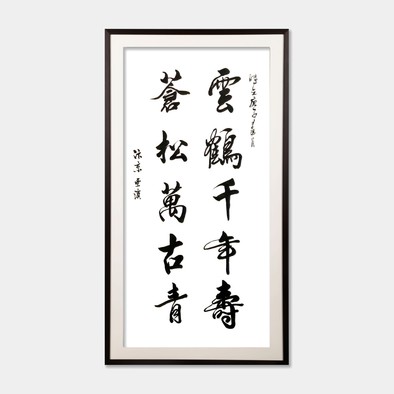 雲鶴千年壽
蒼松萬古青